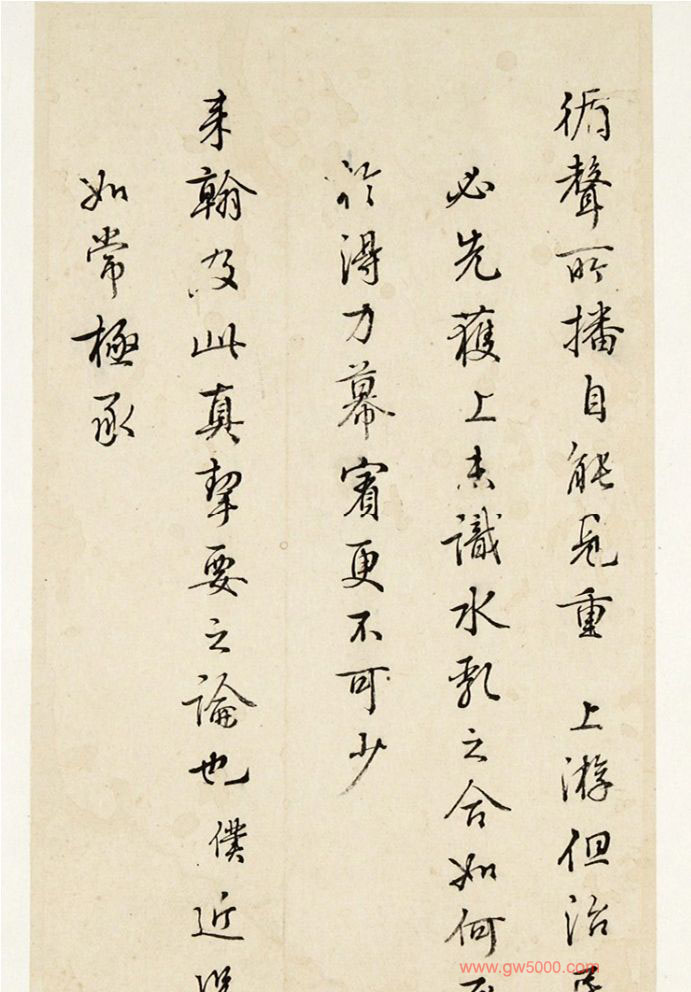 循聲所播自能見重 上游但治民
必先獲上未識水乳之合如何
於得力幕賓更不可少
来翰及此真挈要之論也僕近
如常極承
www.gw5000.com